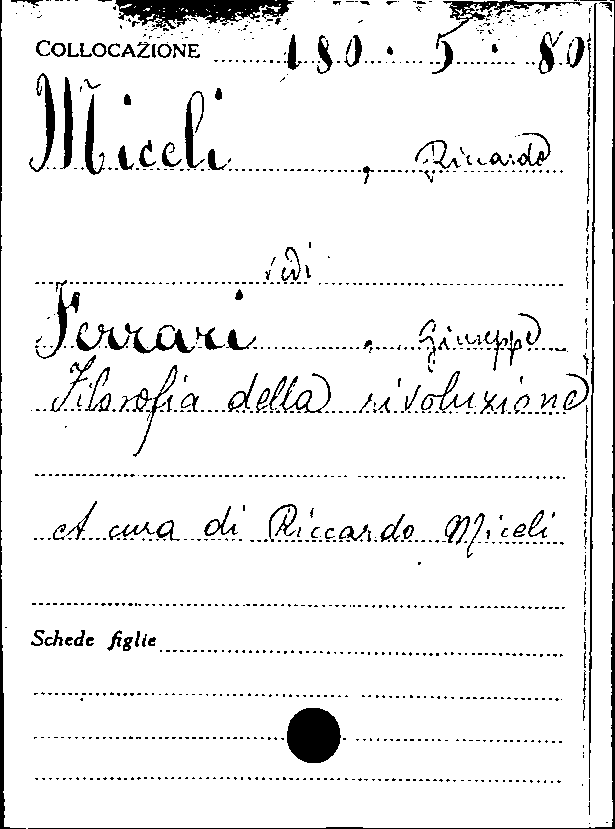 COLLOCAZIONE 180.5.80
Miceli, Riccardo
vedi
Ferrari, Giuseppe
Filosofia della rivoluzione
A cura di Riccardo Miceli
Schede figlie